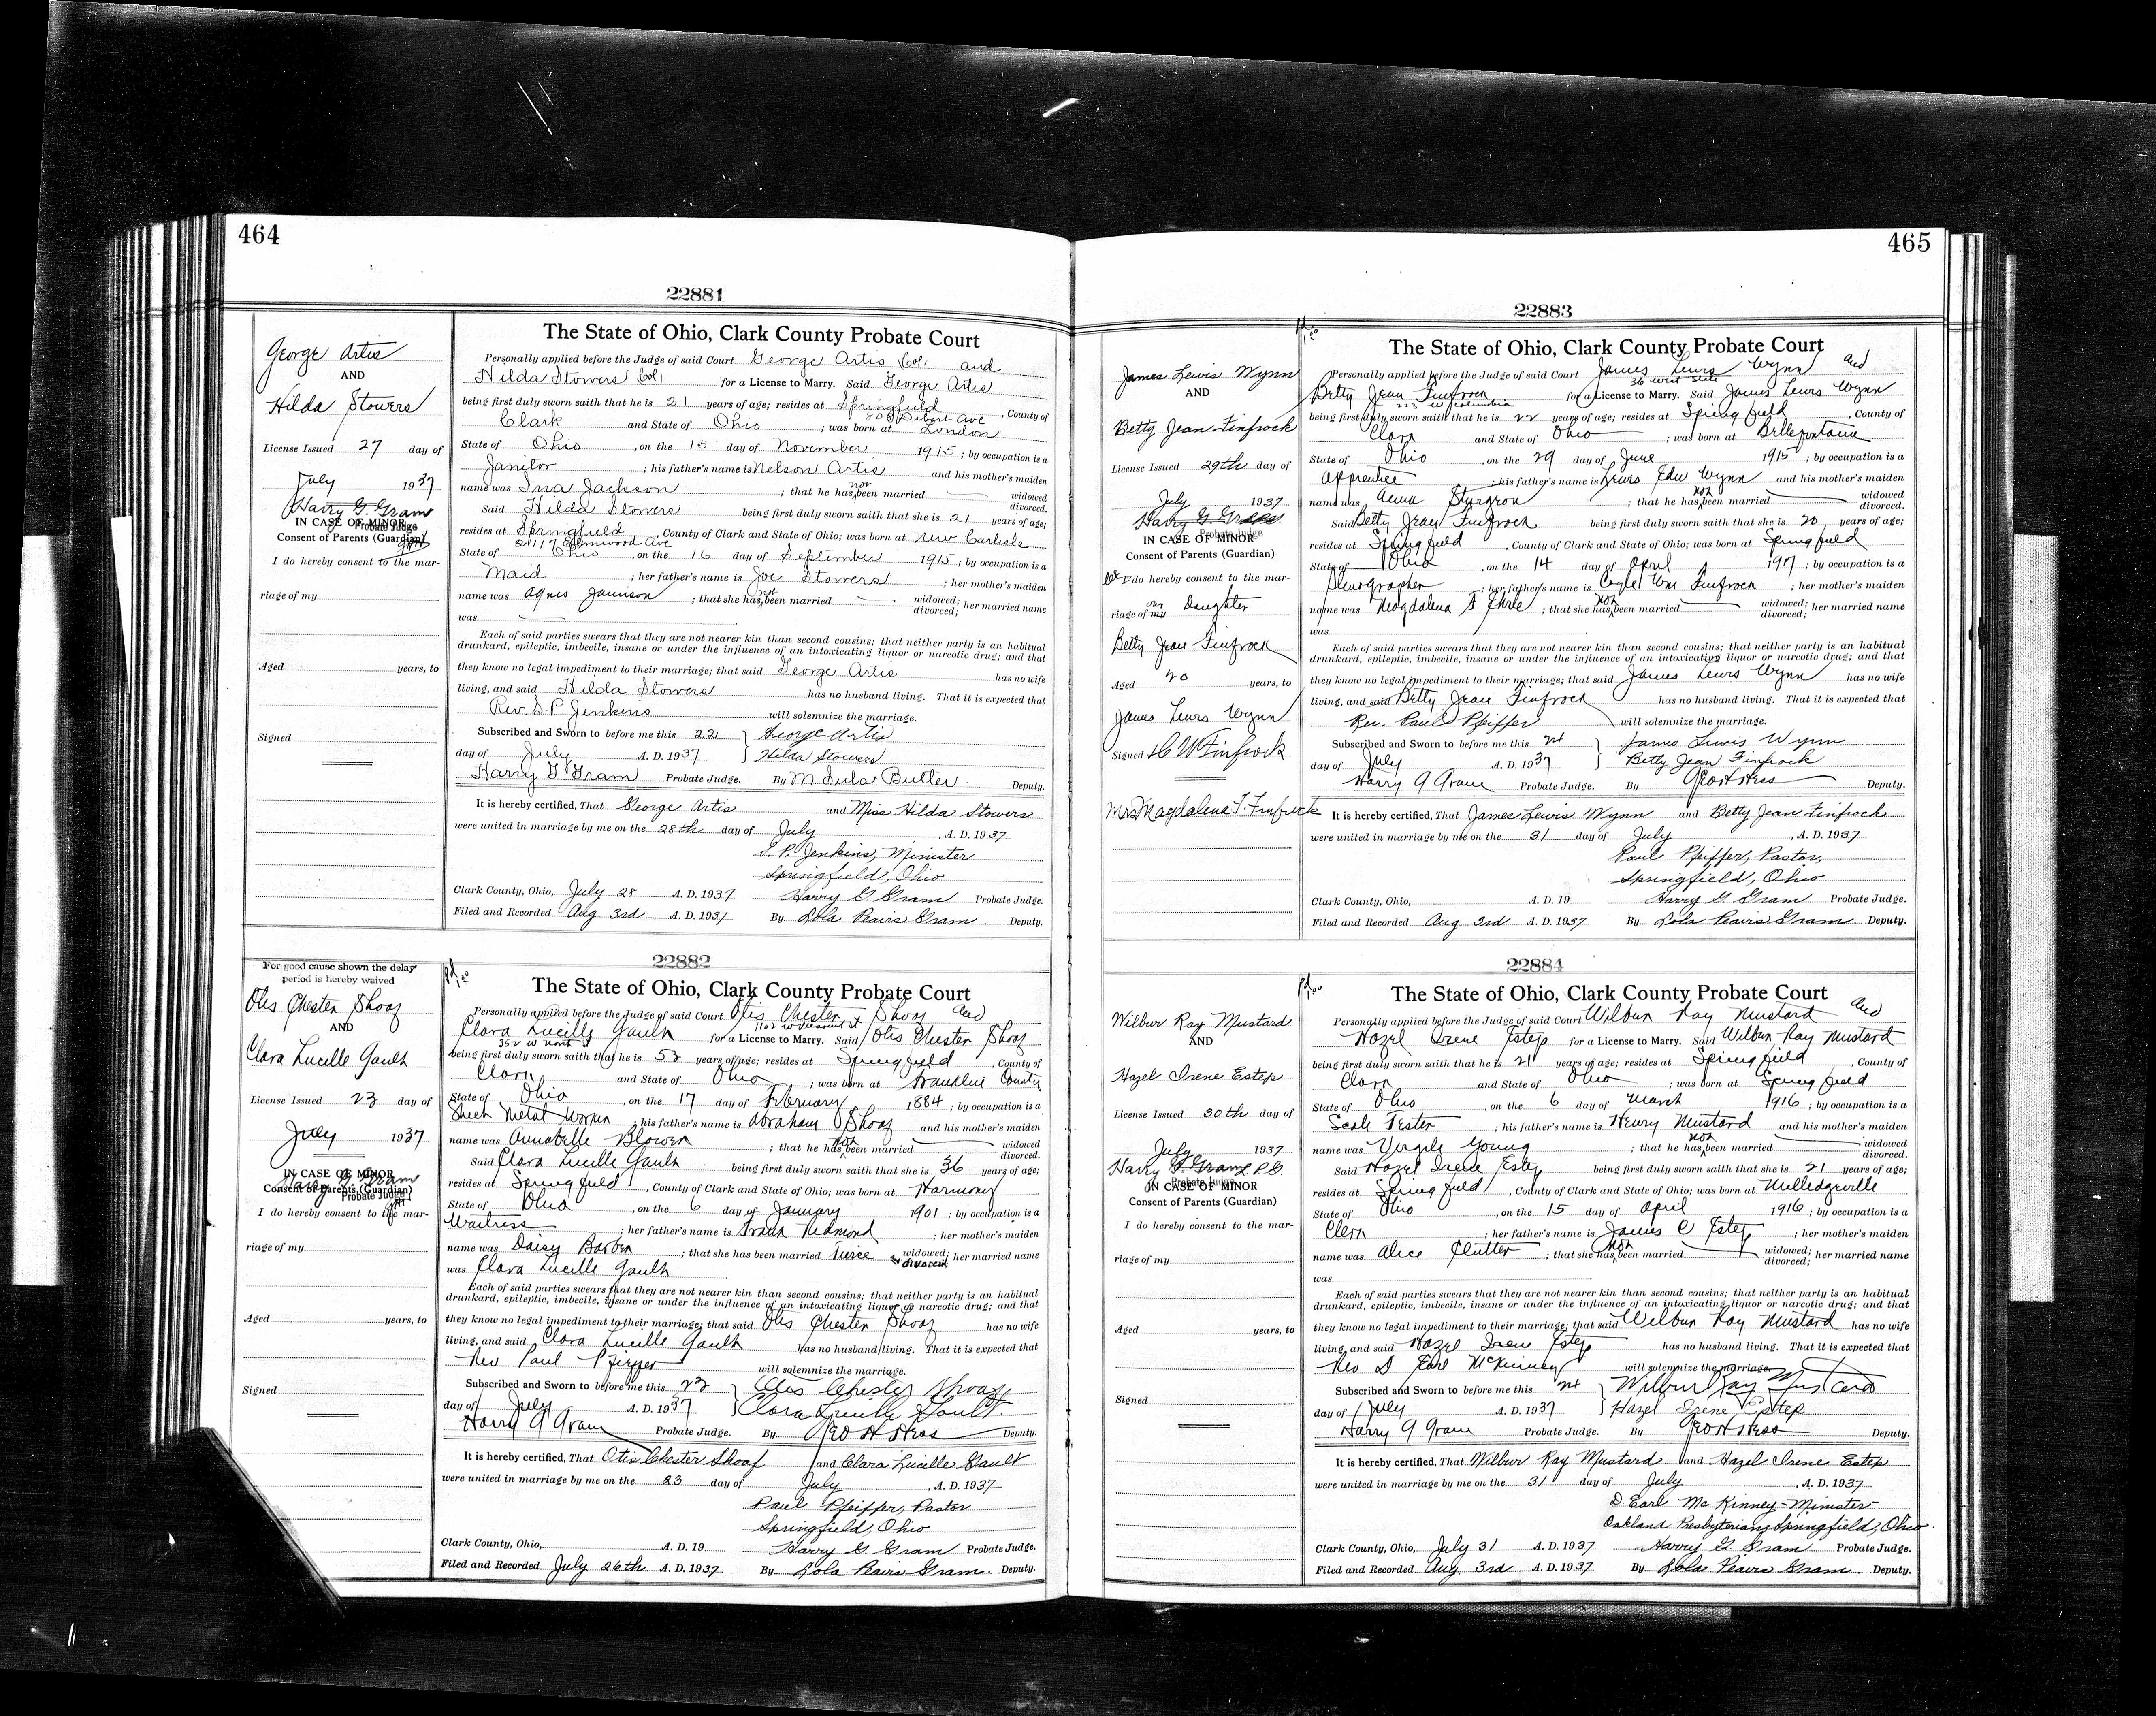 464
22881
George Artis
AND
Hilda Stowers
License Issued 27 day of
July 1937
Harry G. Gram
Probate Judge
IN CASE OF MINOR
Consent of Parents (Guardian)
I do hereby consent to the mar-
riage of my
Aged years, to
Signed
The State of Ohio, Clark County Probate Court
Personally applied before the Judge of said Court George Artis Col. and
Hilda Stowers Col for a License to Marry. Said George Artis
being first duly sworn saith that he is 21 years of age; resides at Springfield, County of
Clark and State of Ohio; was born at London
State of Ohio, on the 15 day of November 1915; by occupation is a
Janitor; his father's name is Nelson Artis and his mother's maiden
name was Jackson; that he has not been married widowed divorced.
Said Hilda Stowers being first duly sworn saith that she is 21 years of age;
resides at Springfield, County of Clark and State of Ohio; was born at New Carlisle
State of Ohio, on the 16 day of September 1915; by occupation is a
Maid; her father's name is Joe Stowers; her mother's maiden
name was Agnes Jamison; that she has not been married widowed; divorced; her married name
was
Each of said parties swears that they are not nearer kin than second cousins; that neither party is an habitual
drunkard, epileptic, imbecile, insane or under the influence of an intoxicating liquor or narcotic drug; and that
they know no legal impediment to their marriage; that said George Artis has no wife
living, and said Hilda Stowers has no husband living. That it is expected that
Rev. S P Jenkins will solemnize the marriage.
Subscribed and Sworn to before me this 22 George Artis
day of July A. D. 1937 Hilda Stowers
Harry G Gram Probate Judge. By M. Lula Butler Deputy.
It is hereby certified, That George Artis and Miss Hilda Stowers
were united in marriage by me on the 28th day of July, A. D. 1937
S. P. Jenkins, Minister
Springfield, Ohio
Clark County, Ohio, July 28 A. D. 1937 Harry G Gram Probate Judge.
Filed and Recorded Aug 3rd A. D. 1937 By Lola Peairs Gram Deputy.
22882
For good cause shown the delay
period is hereby waived
Otis Chester Shoaf
AND
Clara Lucille Gault
License Issued 23 day of
July 1937
Harry G. Gram
Probate Judge
IN CASE OF MINOR
Consent of Parents (Guardian)
I do hereby consent to the mar-
riage of my
Aged years, to
Signed
pd 1.00
The State of Ohio, Clark County Probate Court
Personally applied before the Judge of said Court Otis Chester Shoaf and
1162 W Pleasant St
Clara Lucille Gault for a License to Marry. Said Otis Chester Shoaf
352 W North St
being first duly sworn saith that he is 53 years of age; resides at Springfield, County of
Clark and State of Ohio; was born at Franklin County
State of Ohio, on the 17 day of February 1884; by occupation is a
Sheet Metal Worker; his father's name is Abraham Shoaf and his mother's maiden
name was Annabelle Blower; that he has not been married widowed divorced.
Said Clara Lucille Gault being first duly sworn saith that she is 36 years of age;
resides at Springfield, County of Clark and State of Ohio; was born at Harmony
State of Ohio, on the 6 day of January 1901; by occupation is a
Waitress; her father's name is Frank Redmond; her mother's maiden
name was Daisy Barber; that she has been married twice widowed; divorced; her married name
was Clara Lucille Gault
Each of said parties swears that they are not nearer kin than second cousins; that neither party is an habitual
drunkard, epileptic, imbecile, insane or under the influence of an intoxicating liquor or narcotic drug; and that
they know no legal impediment to their marriage; that said Otis Chester Shoaf has no wife
living, and said Clara Lucille Gault has no husband living. That it is expected that
Rev Paul Pfieffer will solemnize the marriage.
Subscribed and Sworn to before me this 23 Otis Chester Shoaf
day of July A. D. 1937 Clara Lucille Gault
Harry G Gram Probate Judge. By Geo H Hess Deputy.
It is hereby certified, That Otis Chester Shoaf and Clara Lucille Gault
were united in marriage by me on the 23 day of July, A. D. 1937
Paul Pfeiffer, Pastor
Springfield, Ohio
Clark County, Ohio, A. D. 19 Harry G Gram Probate Judge.
Filed and Recorded July 26th A. D. 1937 By Lola Peairs Gram. Deputy.
465
22883
James Lewis Wynn
AND
Betty Jean Finfrock
License Issued 29th day of
July 1937
Harry G. Gram
Probate Judge
IN CASE OF MINOR
Consent of Parents (Guardian)
We I do hereby consent to the mar-
riage of our my Daughter
Betty Jean Finfrock
Aged 20 years, to
James Lewis Wynn
Signed C W Finfrock
Mrs Magdalena F. Finfrock
pd 1.00
The State of Ohio, Clark County Probate Court
Personally applied before the Judge of said Court James Lewis Wynn and
36 West State
Betty Jean Finfrock for a License to Marry. Said James Lewis Wynn
223 W Columbia
being first duly sworn saith that he is 22 years of age; resides at Springfield, County of
Clark and State of Ohio; was born at Bellefontaine
State of Ohio, on the 29 day of June 1915; by occupation is a
Apprentice; his father's name is Lewis Edw Wynn and his mother's maiden
name was Anna Sturgeon; that he has not been married widowed divorced.
Said Betty Jean Finfrock being first duly sworn saith that she is 20 years of age;
resides at Springfield, County of Clark and State of Ohio; was born at Springfield
State of Ohio, on the 14 day of April 1917; by occupation is a
Stenographer; her father's name is Wm Finfrock; her mother's maiden
name was Magdalena F Ehrle; that she has not been married widowed; divorced; her married name
was
Each of said parties swears that they are not nearer kin than second cousins; that neither party is an habitual
drunkard, epileptic, imbecile, insane or under the influence of an intoxicating liquor or narcotic drug; and that
they know no legal impediment to their marriage; that said James Lewis Wynn has no wife
living, and said Betty Jean Finfrock has no husband living. That it is expected that
Rev. Paul Pfeiffer will solemnize the marriage.
Subscribed and Sworn to before me this James Lewis Wynn
day of July A. D. 1937 Betty Jean Finfrock
Harry G Gram Probate Judge. By Geo H Hess Deputy.
It is hereby certified, That James Lewis Wynn and Betty Jean Finfrock
were united in marriage by me on the 31 day of July, A. D. 1937
Paul Pfeiffer, Pastor,
Springfield, Ohio
Clark County, Ohio, A. D. 19 Harry G Gram Probate Judge.
Filed and Recorded Aug 3rd A. D. 1937 By Lola Peairs Gram Deputy.
22884
Wilbur Ray Mustard
AND
Hazel Irene Estep
License Issued 30th day of
July 1937
Harry G. Gram P.J.
Probate Judge
IN CASE OF MINOR
Consent of Parents (Guardian)
I do hereby consent to the mar-
riage of my
Aged years, to
Signed
pd 1.00
The State of Ohio, Clark County Probate Court
Personally applied before the Judge of said Court Wilbur Ray Mustard and
Hazel Irene Estep for a License to Marry. Said Wilbur Ray Mustard
being first duly sworn saith that he is 21 years of age; resides at Springfield, County of
Clark and State of Ohio; was born at Springfield
State of Ohio, on the 6 day of March 1916; by occupation is a
Scale Tester; his father's name is Henry Mustard and his mother's maiden
name was Virgile Young; that he has not been married widowed divorced.
Said Hazel Irene Estep being first duly sworn saith that she is 21 years of age;
resides at Springfield, County of Clark and State of Ohio; was born at Milledgeville
State of Ohio, on the 15 day of April 1916; by occupation is a
Clerk; her father's name is James C Estep; her mother's maiden
name was Alice Clutter; that she has not been married widowed; divorced; her married name
was
Each of said parties swears that they are not nearer kin than second cousins; that neither party is an habitual
drunkard, epileptic, imbecile, insane or under the influence of an intoxicating liquor or narcotic drug; and that
they know no legal impediment to their marriage; that said Wilbur Ray Mustard has no wife
living, and said Hazel Irene Estep has no husband living. That it is expected that
Rev D Earl McKinney will solemnize the marriage.
Subscribed and Sworn to before me this Wilbur Ray Mustard
day of July A. D. 1937 Hazel Irene Estep
Harry G Gram Probate Judge. By Geo H Hess Deputy.
It is hereby certified, That Wilbur Ray Mustard and Hazel Irene Estep
were united in marriage by me on the 31 day of July, A. D. 1937
D. Earl McKinney-Minister
Oakland Presbyterian, Springfield, Ohio
Clark County, Ohio, July 31 A. D. 1937 Harry G. Gram Probate Judge.
Filed and Recorded Aug 3rd A. D. 1937 By Lola Peairs Gram Deputy.